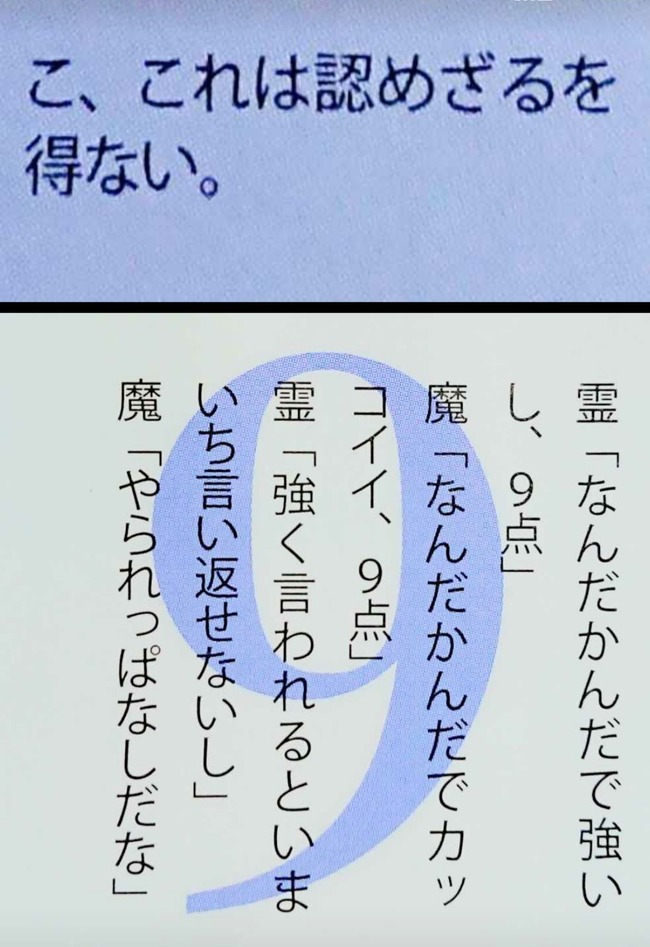 こ、これは認めざるを
得ない。
霊「なんだかんだで強い
し、9点」
魔「なんだかんだでカッ
コイイ、9点」
霊「強く言われるといま
いち言い返せないし」
魔「やられっぱなしだな」
9